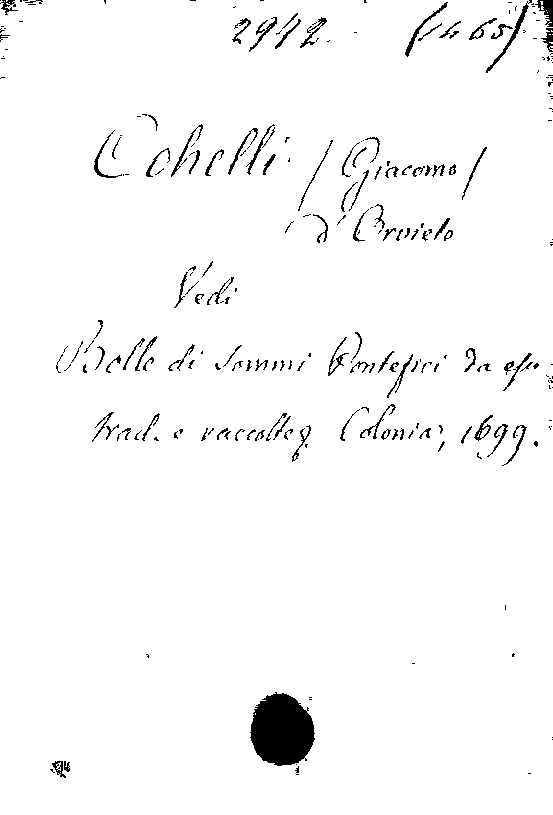 2942. (1465)
Cohelli. (Giacomo)
d'Orvieto
Vedi
Bolle di Sommi Pontefici da
trad. e raccolte. Colonia, 1699.